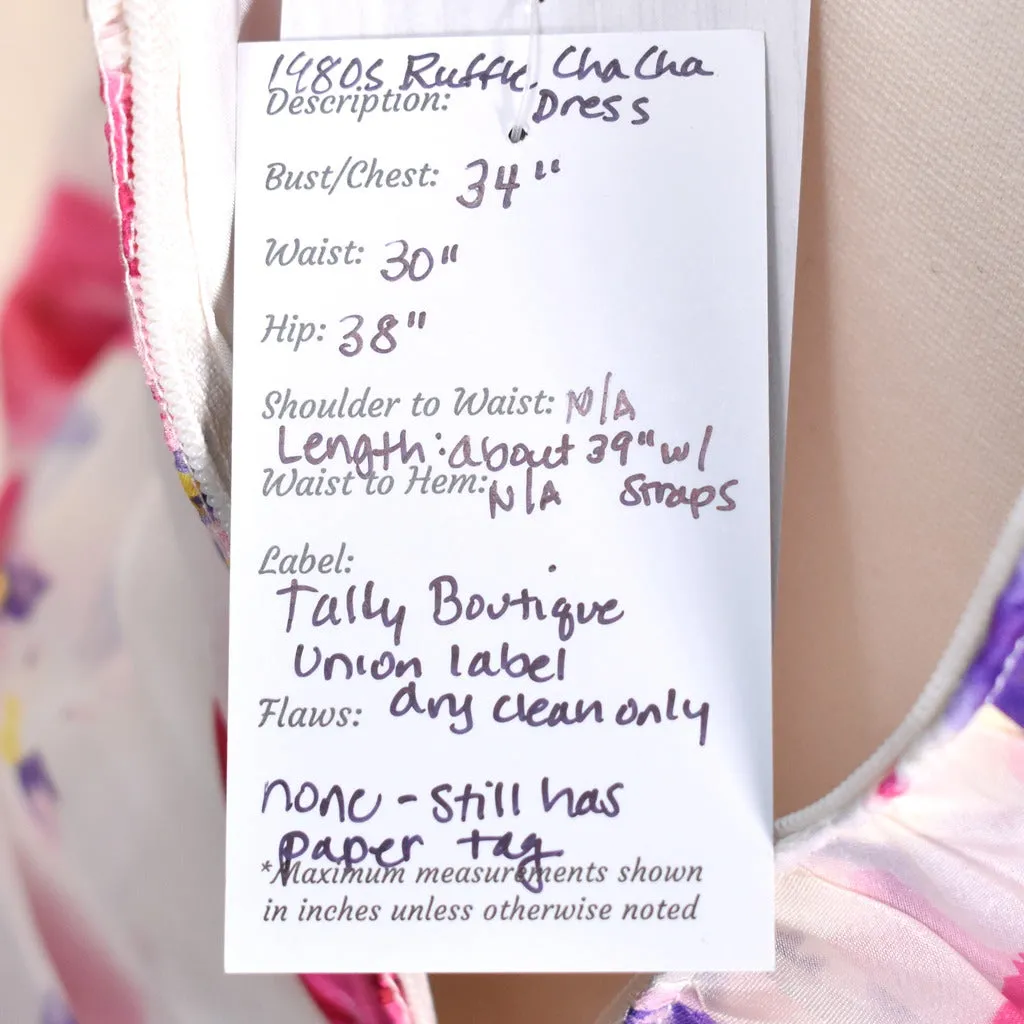 1980s Ruffle Cha Cha
Description: Dress
Bust/Chest: 34"
Waist: 30"
Hip: 38"
Shoulder to Waist: N/A
Length: about 39" w/
Waist to Hem: N/A straps
Label:
Tally Boutique
Union label
Flaws: dry clean only
none - still has
paper tag
*Maximum measurements shown
in inches unless otherwise noted